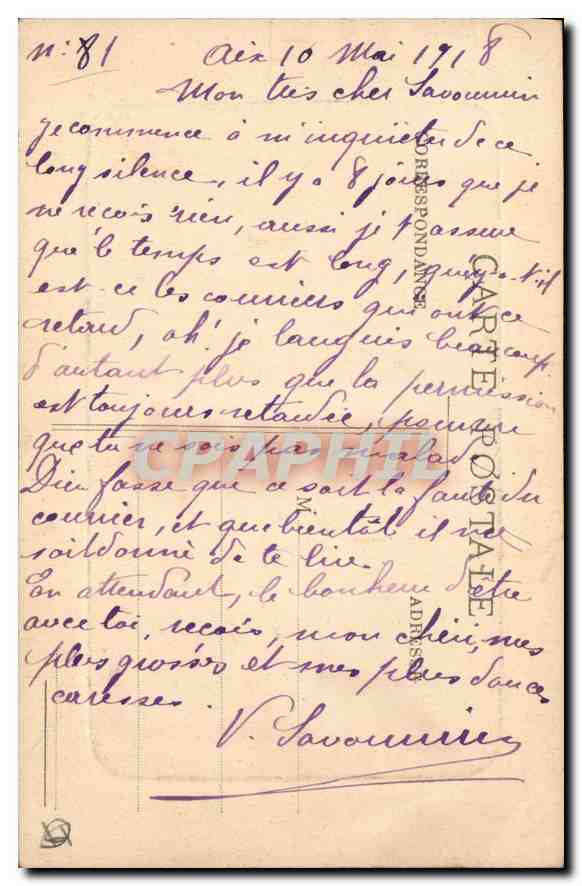 N: 81 Aix 10 Mai 1918
Mon très cher Savournin
je commence à m'inquiéter de ce
long silence, il y a 8 jours que je
ne reçois rien, aussi je t'assure
que le temps est long, qu'y a-t-il
est-ce les courriers qui ont ce
retard, oh! je languis beaucoup
d'autant plus que la permission
est toujours retardée, pourvu
que tu ne sois pas malade
Dieu fasse que ce soit la faute du
courrier, et que bientôt il me
soit donné de te lire.
En attendant, le bonheur d'être
avec toi, reçois, mon chéri, mes
plus grosses et mes plus douces
caresses.
V. Savournin
CARTE POSTALE
CORRESPONDANCE
ADRESSE
M
CPAPHIL